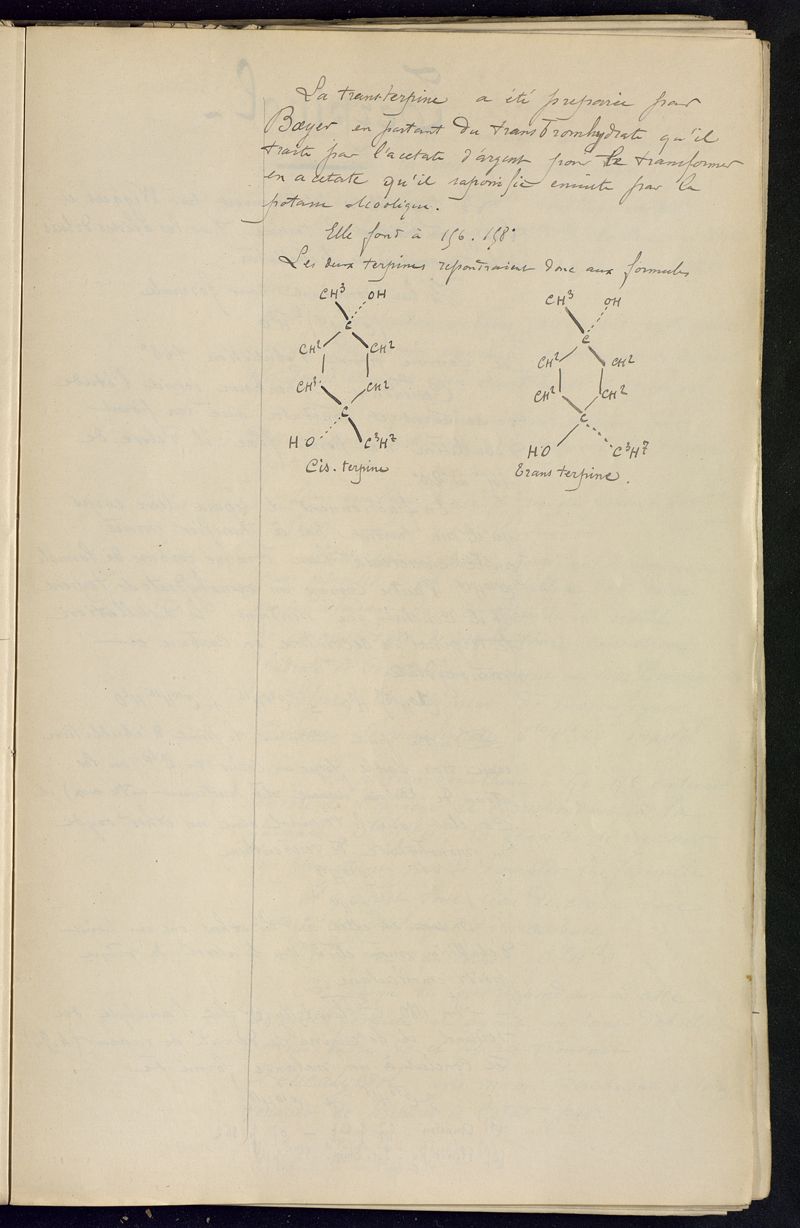 La transterpine a été preparée par
Bæyer en partant du transbromhydrate qu'il
traite par l'acetate d'argent pour le transformer
en acetate qu'il saponifie ensuite par la
potasse alcoolique.
Elle fond à 156-158°
Les deux terpines repondraient donc aux formules
CH³ OH CH³ OH
C C
CH² CH² CH² CH²
CH² CH² CH² CH²
C C
HO C³H⁷ HO C³H⁷
Cis-terpine Trans terpine.